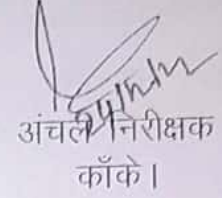 अंचल निरीक्षक
काँके।